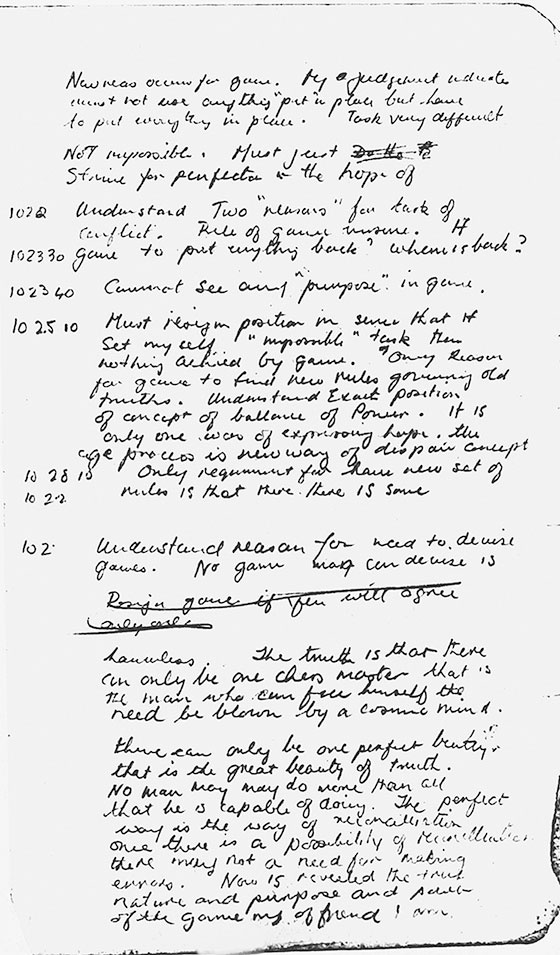 Now reas occurs for game. My judgement indicates
must not use anything "put" in place but have
to put everything in place. Task very difficult
NOT impossible. Must just
Strive for perfection in the hope of
1022 Understand Two "reasons" for task of
conflict. Rule of game unsure. If
102330 game to put anything back? where is back?
102340 Cannot see any "purpose" in game.
102510 Must resign position in sense that if
set myself "impossible" task then
nothing achived by game. Only Reason
for game to find new rules governing old
truths. Understand Exact position
of concept of ballance of Power. It is
only one way of expressing hope. the
age process is new way of dispair concept
102815 Only requirment for have new set of
1022 rules is that there. there IS some
102 Understand reason for need to devise
games. No game man can devise is
Resign game if you will agree
harmless. The truth is that there
can only be one chess master that is
the man who can free himself the
need be blown by a cosmic mind.
there can only be one perfect beauty.
that is the great beauty of truth.
No man may may do more than all
that he is capable of doing. The perfect
way is the way of reconciliation
once there is a possibility of reconciliation
there may not a need for making
errors. Now is revealed the true
nature and purpose and power
of the game my offrend I am